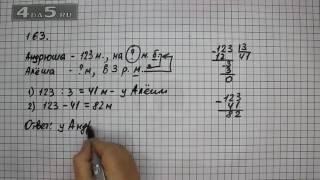 4·ab·RU
163.
Андрюша - 123 м., на ? м. б.
Алёша - ? м, в 3 р. м.
1) 123 : 3 = 41 м - у Алёши
2) 123 - 41 = 82 м
Ответ: у Анд
-123 |3
12 |41
-3
3
0
-123
41
82